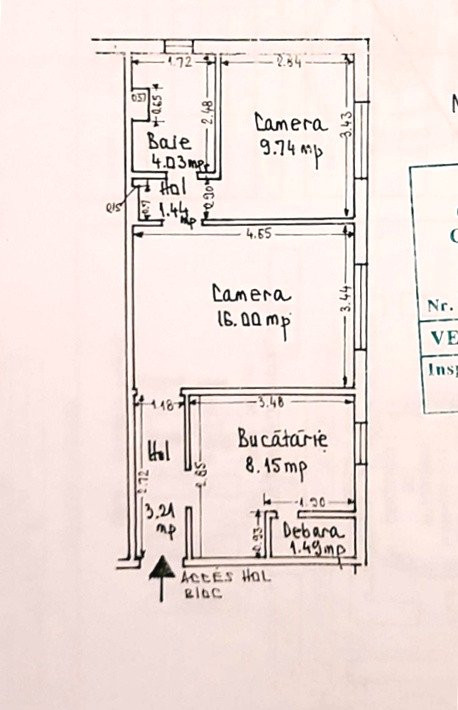 1.72
2.84
0.37
0.65
2.48
Camera
9.74 mp
3.43
Baie
4.03 mp
Hol
0.90
1.44 mp
4.65
Camera
16.00 mp
3.44
1.18
3.48
Hol
Bucătărie
8.15 mp
2.72
2.85
1.90
3.21
mp
0.93
Debara
1.49 mp
ACCES HOL
BLOC
Nr.
VE
Insp